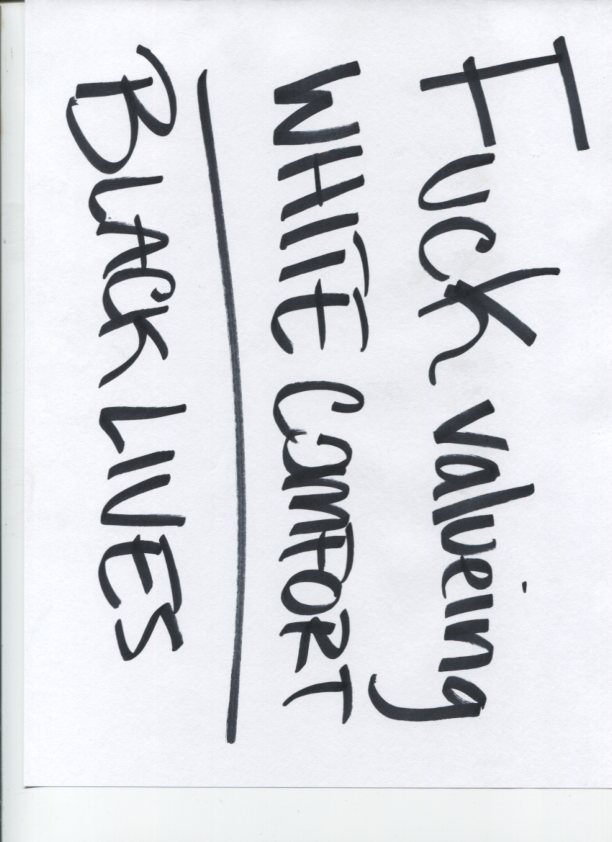 Fuck valueing
WHITE COMFORT
BLACK LIVES